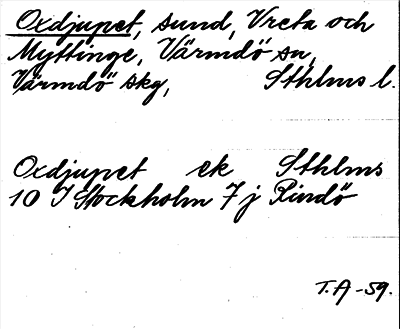 Oxdjupet, sund, Vreta och
Myttinge, Värmdö sn,
Värmdö skg, Sthlms l.
Oxdjupet ek Sthlms
10 I Stockholm 7 j Rindö
T.A -59.